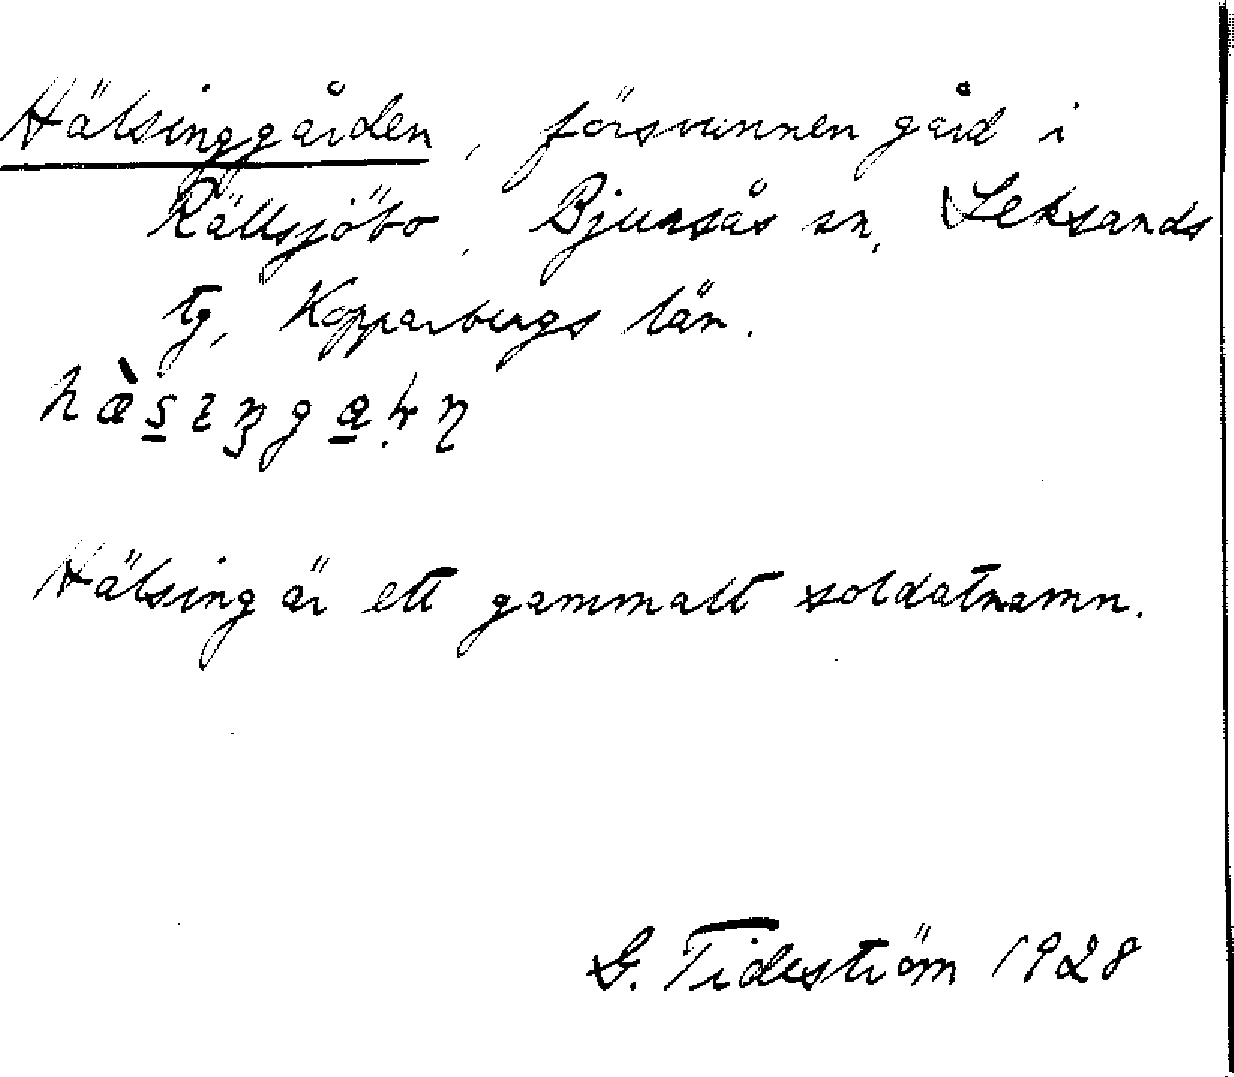 Hälsinggården, försvunnen gård i
Rällsjöbo, Bjursås sn, Leksands
tg, Kopparbergs län.
Hälsing är ett gammalt soldatnamn.
G. Tideström 1928